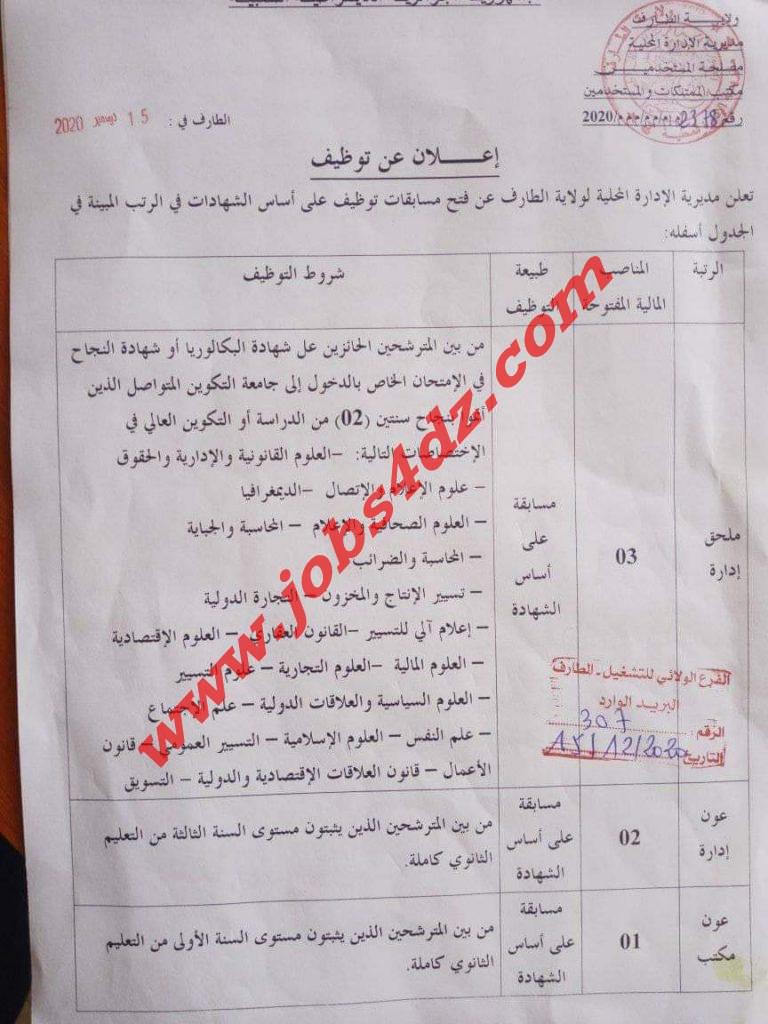 ولاية الطارف
مديرية الإدارة المحلية
مصلحة المستخدمين
مكتب الممتلكات والمستخدمين
رقم 2378/2020
الطارف في : 15 ديسمبر 2020
إعلان عن توظيف
تعلن مديرية الإدارة المحلية لولاية الطارف عن فتح مسابقات توظيف على أساس الشهادات في الرتب المبينة في
الجدول أسفله:
الرتبة
المناصب
المالية المفتوحة
طبيعة
التوظيف
شروط التوظيف
ملحق
إدارة
03
مسابقة
على
أساس
الشهادة
من بين المترشحين الحائزين عل شهادة البكالوريا أو شهادة النجاح
في الإمتحان الخاص بالدخول إلى جامعة التكوين المتواصل الذين
أتموا بنجاح سنتين (02) من الدراسة أو التكوين العالي في
الإختصاصات التالية: -العلوم القانونية والإدارية والحقوق
- علوم الإعلام والإتصال -الديمغرافيا
- العلوم الصحافية والإعلام - المحاسبة والجباية
- المحاسبة والضرائب
- تسيير الإنتاج والمخزون - التجارة الدولية
- إعلام آلي للتسيير -القانون العقاري - العلوم الإقتصادية
- العلوم المالية -العلوم التجارية - علوم التسيير
- العلوم السياسية والعلاقات الدولية - علم الإجتماع
- علم النفس - العلوم الإسلامية - التسيير العمومي - قانون
الأعمال - قانون العلاقات الإقتصادية والدولية - التسويق
الفرع الولائي للتشغيل - الطارف
البريد الوارد
الرقم: 307
التاريخ 15/12/2020
عون
إدارة
02
مسابقة
على أساس
الشهادة
من بين المترشحين الذين يثبتون مستوى السنة الثالثة من التعليم
الثانوي كاملة.
عون
مكتب
01
مسابقة
على أساس
الشهادة
من بين المترشحين الذين يثبتون مستوى السنة الأولى من التعليم
الثانوي كاملة.
www.jobs4dz.com